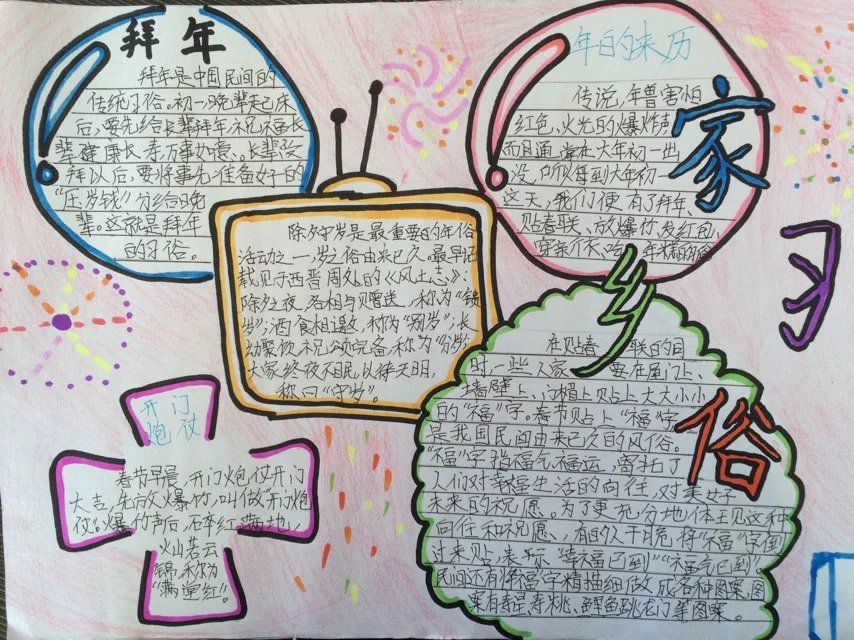 拜年
拜年是中国民间的
传统习俗。初一晚辈起床
后,要先给长辈拜年,祝福长
辈健康长寿,万事如意。长辈受
拜以后,要将事先准备好的
“压岁钱”分给晚
辈。这就是拜年
的习俗。
年的来历
传说,年兽害怕
红色、火光的爆炸声
而且通常在大年初一出
没,所以每到大年初一
这天,我们便有了拜年、
贴春联、放爆竹、发红包、
家
乡
习
俗
除夕守岁是最重要的年俗
活动之一,岁之俗由来已久。最早记
载见于西晋周处的《风土志》:
除夕之夜,各相与赠送,称为“馈
岁”;酒食相邀,称为“别岁”;长
幼聚饮,祝颂完备,称为“分岁”
大家终夜不眠,以待天明,
称曰“守岁”。
开门
炮仗
春节早晨,开门炮仗开门
大吉,先放爆竹,叫做开门炮
仗。爆竹声后,碎红满地,
灿若云
锦,称为
“满堂红”。
在贴春联的同
时,一些人家要在屋门上、
墙壁上、门楣上贴上大大小小
的“福”字。春节贴上“福”字
是我国民间由来已久的风俗。
“福”字指福气福运,寄托了
人们对幸福生活的向往,对美好
未来的祝愿。为了更充分地体现这种
向往和祝愿,有的人干脆将“福”字倒
过来贴,表示“幸福已到”“福气已到”。
民间还有将福字精描细做成各种图案,图
案有寿星、寿桃、鲤鱼跳龙门等图案。